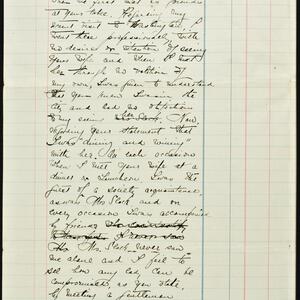 when we first met as friends
at your table. Regarding my
recent visit to Washington I
went there professionally with
no desire or intention of seeing
your wife and when I met
her through no volition of
my own, I was given to understand
that you knew I was in the
city and had no objection
to my seeing her. Now,
regarding your statement that
I was "dining and wining"
with her. On each occasion
when I met your wife at a
dinner or luncheon I was the
guest of a society acquaintance
as was Mrs Slack and on
every occasion I was accompanied
by friends
Mrs. Slack never saw
me alone and I fail to
see how any lady can be
compromised, as you state,
by meeting a gentleman